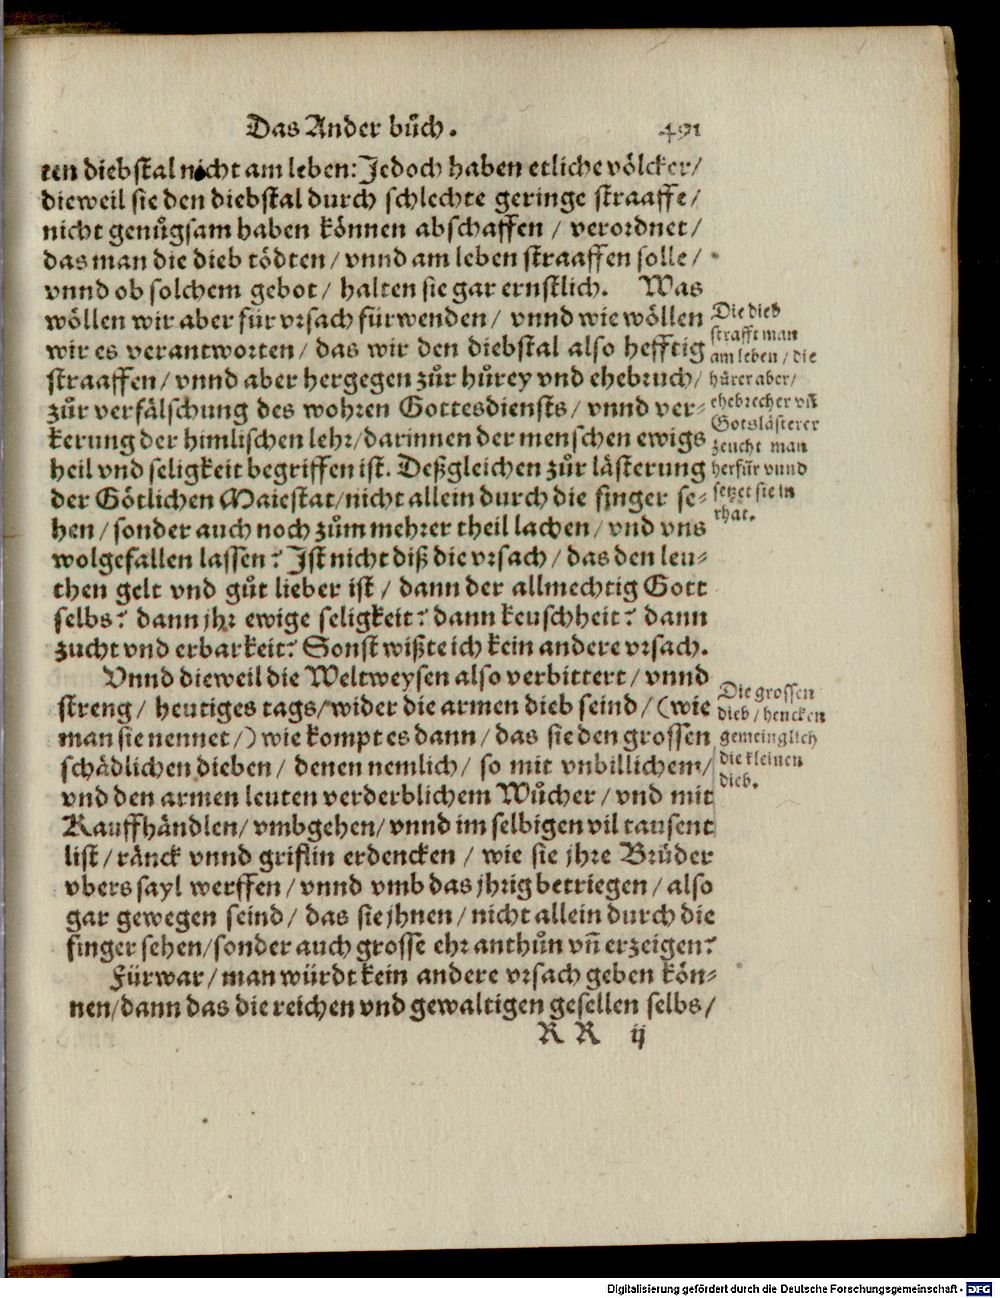 Das Ander bůch. 491
ten diebstal nicht am leben: Jedoch haben etliche völcker/
dieweil sie den diebstal durch schlechte geringe straaffe/
nicht genůgsam haben können abschaffen / verordnet/
das man die dieb tödten / vnnd am leben straaffen solle /
vnnd ob solchem gebot / halten sie gar ernstlich. Was
wöllen wir aber für vrsach fürwenden / vnnd wie wöllen
wir es verantworten / das wir den diebstal also hefftig
straaffen / vnnd aber hergegen zůr hůrey vnd ehebruch /
zůr verfälschung des wohren Gottesdiensts / vnnd ver-
kerung der himlischen lehr / darinnen der menschen ewigs
heil vnd seligkeit begriffen ist. Deßgleichen zůr lästerung
der Götlichen Maiestat / nicht allein durch die finger se-
hen / sonder auch noch zům mehrer theil lachen / vnd vns
wolgefallen lassen? Ist nicht diß die vrsach / das den leu-
then gelt vnd gůt lieber ist / dann der allmechtig Gott
selbs? dann jhr ewige seligkeit? dann keuschheit? dann
zucht vnd erbarkeit? Sonst wißte ich kein andere vrsach.
Vnnd dieweil die Weltweysen also verbittert / vnnd
streng / heutiges tags / wider die armen dieb seind / (wie
man sie nennet /) wie kompt es dann / das sie den grossen
schädlichen dieben / denen nemlich / so mit vnbillichem /
vnd den armen leuten verderblichem Wůcher / vnd mit
Kauffhändlen / vmbgehen / vnnd im selbigen vil tausent
list / ränck vnnd griflin erdencken / wie sie jhre Brůder
vbers sayl werffen / vnnd vmb das jhrig betriegen / also
gar gewegen seind / das sie jhnen / nicht allein durch die
finger sehen / sonder auch grosse ehr anthůn vñ erzeigen?
Fürwar / man würdt kein andere vrsach geben kön-
nen / dann das die reichen vnd gewaltigen gesellen selbs /
RR ij
Die dieb
strafft man
am leben / die
hůrer aber /
ehebrecher vñ
Gotslästerer
zeucht man
herfůr vnnd
setzet sie in
rhat.
Die grossen
dieb / hencken
gemeinglich
die kleinen
dieb.
Digitalisierung gefördert durch die Deutsche Forschungsgemeinschaft - DFG